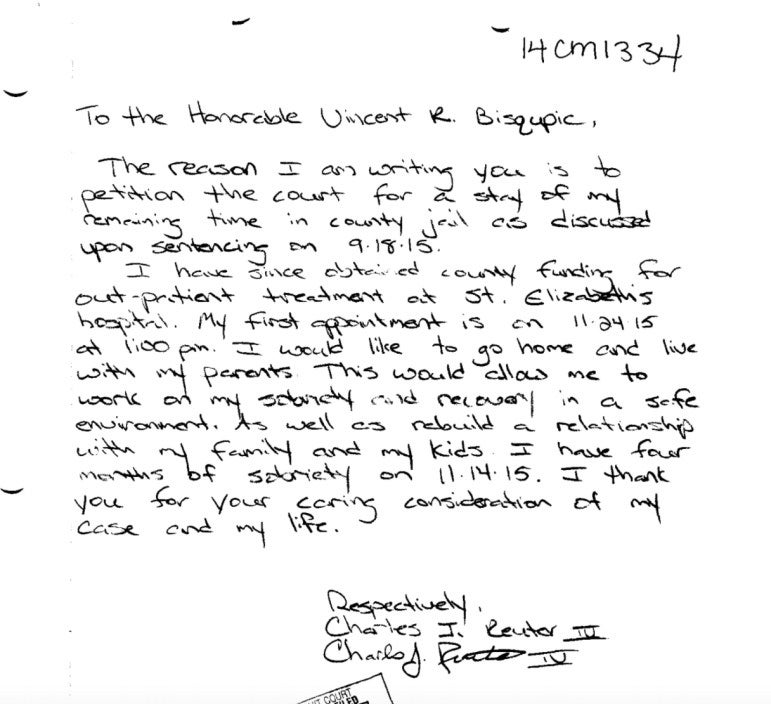 14CM1334
To the Honorable Vincent R. Bisqupic,
The reason I am writing you is to
petition the court for a stay of my
remaining time in county jail as discussed
upon sentencing on 9.18.15.
I have since obtained county funding for
out-patient treatment at St. Elizabeth's
hospital. My first appointment is on 11.24.15
at 1:00 pm. I would like to go home and live
with my parents. This would allow me to
work on my sobriety and recovery in a safe
environment. As well as rebuild a relationship
with my family and my kids. I have four
months of sobriety on 11.14.15. I thank
you for your caring consideration of my
case and my life.
Respectively,
Charles J. Reuter IV
Charles J. IV
COURT
FILED